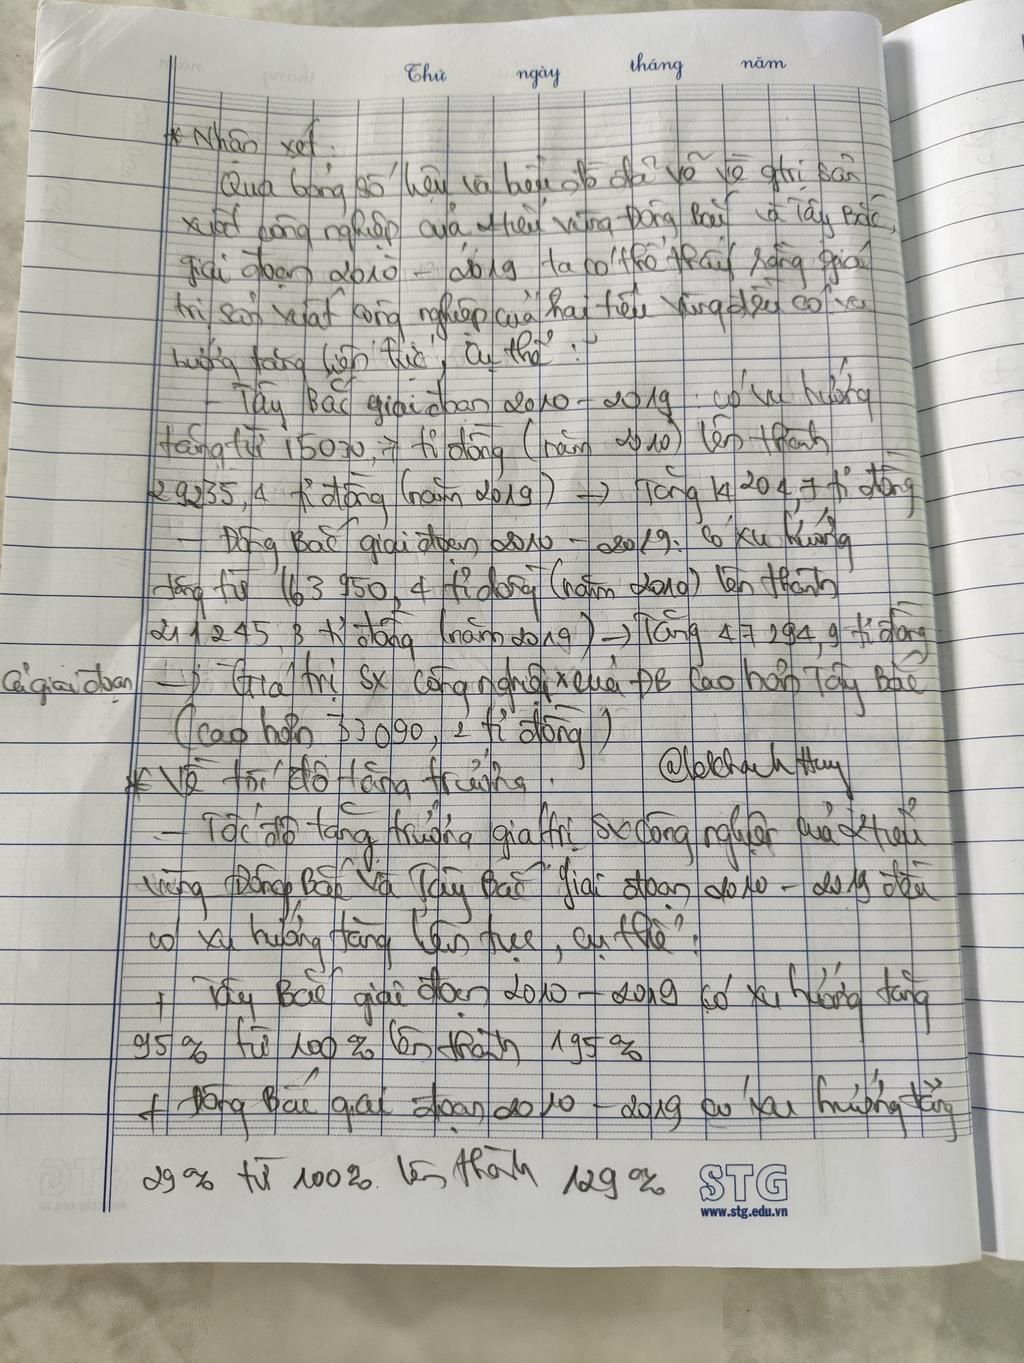 Thứ ngày tháng năm
* Nhận xét:
Qua bảng số liệu và biểu đồ đã vẽ về gtrị sản
xuất công nghiệp của 2 tiểu vùng Đông Bắc và Tây Bắc,
giai đoạn 2010 - 2019 ta có thể thấy rằng giá
trị sản xuất công nghiệp của hai tiểu vùng đều có xu
hướng tăng liên tục, cụ thể:
- Tây Bắc giai đoạn 2010 - 2019: có xu hướng
tăng từ 15030,7 tỉ đồng (năm 2010) lên thành
29235,4 tỉ đồng (năm 2019) → Tăng 14204,7 tỉ đồng
- Đông Bắc giai đoạn 2010 - 2019: có xu hướng
tăng từ 163950,4 tỉ đồng (năm 2010) lên thành
211245,3 tỉ đồng (năm 2019) → Tăng 47294,9 tỉ đồng
Cả giai đoạn → Giá trị SX công nghiệp của ĐB cao hơn Tây Bắc
(cao hơn 33090,2 tỉ đồng)
* Về tốc độ tăng trưởng.
- Tốc độ tăng trưởng giá trị SX công nghiệp của 2 tiểu
vùng Đông Bắc và Tây Bắc giai đoạn 2010 - 2019 đều
có xu hướng tăng liên tục, cụ thể:
+ Tây Bắc giai đoạn 2010 - 2019 có xu hướng tăng
95% từ 100% lên thành 195%
+ Đông Bắc giai đoạn 2010 - 2019 có xu hướng tăng
29% từ 100% lên thành 129%
STG
www.stg.edu.vn